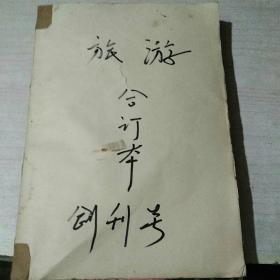 旅游
合订本
创刊号